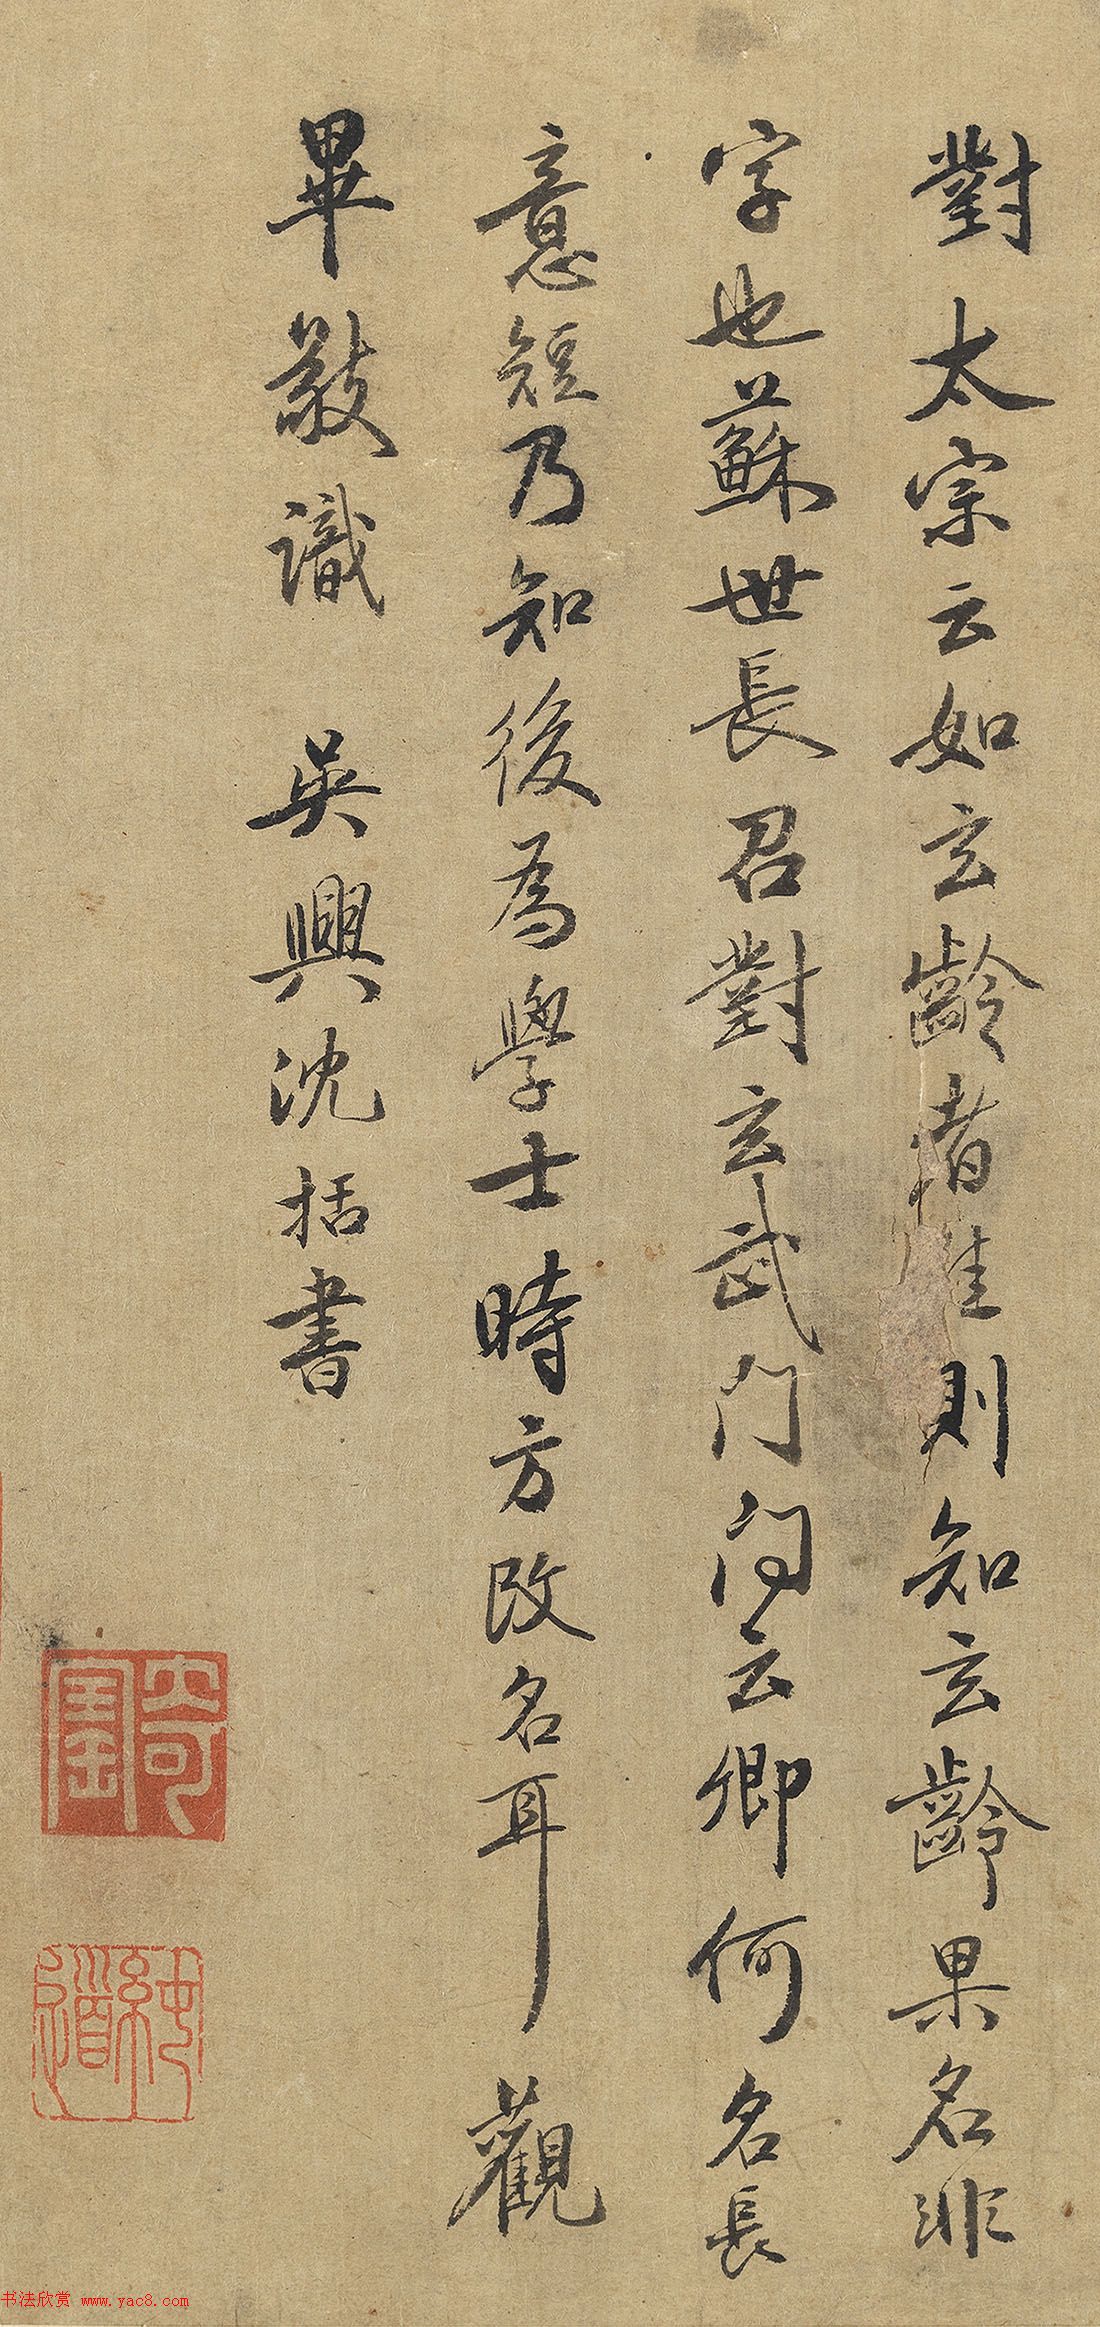 對太宗云如玄齡者唯則知玄齡果名非
字也蘇世長召對玄武門問云卿何名長
意短乃知後為學士時方改名耳觀
畢敬識 吳興沈括書
奇
紳
書法欣賞 www.yac8.com